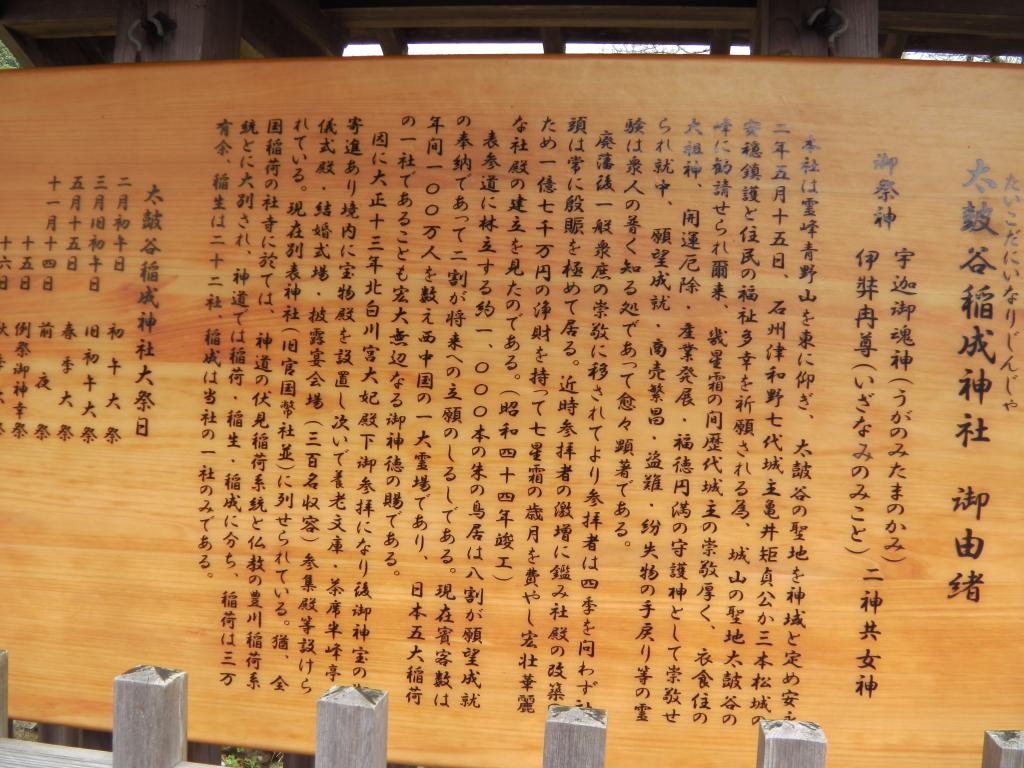 たいこだにいなりじんじゃ
太皷谷稲成神社　御由緒
御祭神　宇迦御魂神（うがのみたまのかみ）
伊弉冉尊（いざなみのみこと）二神共女神
本社は霊峰青野山を東に仰ぎ、太皷谷の聖地を神域と定め安永
二年五月十五日、石州津和野七代城主亀井矩貞公が三本松城の
安穏鎮護と住民の福祉多幸を祈願される為、城山の聖地太皷谷の
峰に勧請せられ爾来、幾星霜の間歴代城主の崇敬厚く、衣食住の
大祖神、開運厄除・産業発展・福徳円満の守護神として崇敬せ
られ就中、願望成就・商売繁昌・盗難・紛失物の手戻り等の霊
験は衆人の普く知る処であって愈々顕著である。
廃藩後一般衆庶の崇敬に移されてより参拝者は四季を問わず社
頭は常に殷賑を極めて居る。近時参拝者の激増に鑑み社殿の改築の
ため一億七千万円の浄財を持って七星霜の歳月を費やし宏壮華麗
な社殿の建立を見たのである。（昭和四十四年竣工）
表参道に林立する約一、〇〇〇本の朱の鳥居は八割が願望成就
の奉納であって二割が将来への立願のしるしである。現在賓客数は
年間一〇〇万人を数え西中国の一大霊場であり、日本五大稲荷
の一社であることも宏大無辺なる御神徳の賜である。
因に大正十三年北白川宮大妃殿下御参拝になり後御神宝の
寄進あり境内に宝物殿を設置し次いで養老文庫・茶席半峰亭
儀式殿・結婚式場・披露宴会場（三百名収容）参集殿等設けら
れている。現在別表神社（旧官国幣社並）に列せられている。猶、全
国稲荷の社寺に於ては、神道の伏見稲荷系統と仏教の豊川稲荷系
統とに大別され、神道では稲荷・稲生・稲成に分ち、稲荷は三万
有余、稲生は二十二社、稲成は当社の一社のみである。
太皷谷稲成神社大祭日
二月初午日　初午大祭
三月旧初午日　旧初午大祭
五月十五日　春季大祭
十一月十四日　前夜祭
十五日　例祭御神幸祭
十六日　秋季大祭